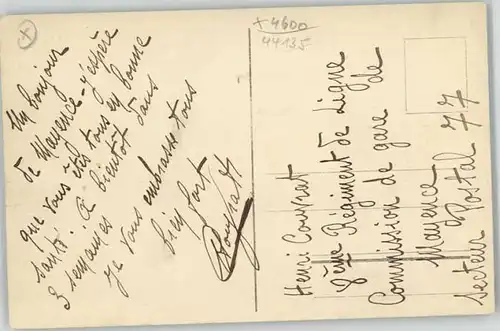 x
x4600
44135
Un bonjour
de Mayence - j'espère
que vous êtes tous en bonne
santé. À bientôt dans
3 semaines
je vous embrasse tous
bien fort
Henri Couvrat
8ème Régiment de Ligne
Commission de gare de
Mayence
Secteur Postal 77